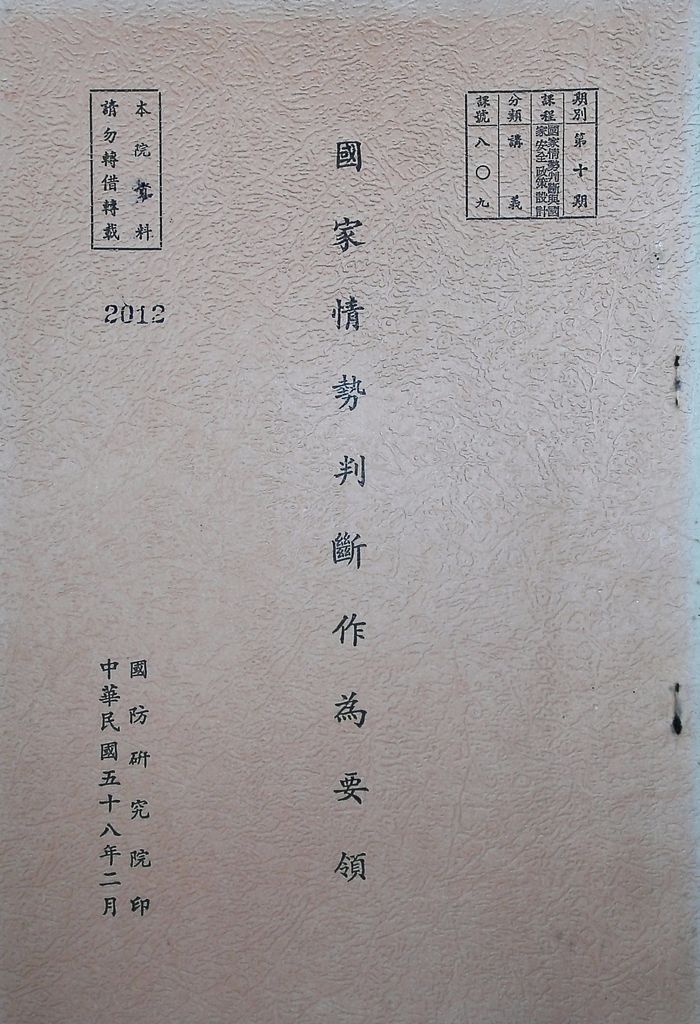 期別 第十期
課程 國家情勢判斷與國家安全政策設計
分類 講義
課號 八〇九
國家情勢判斷作為要領
本院資料
請勿轉借轉載
2012
國防研究院印
中華民國五十八年二月